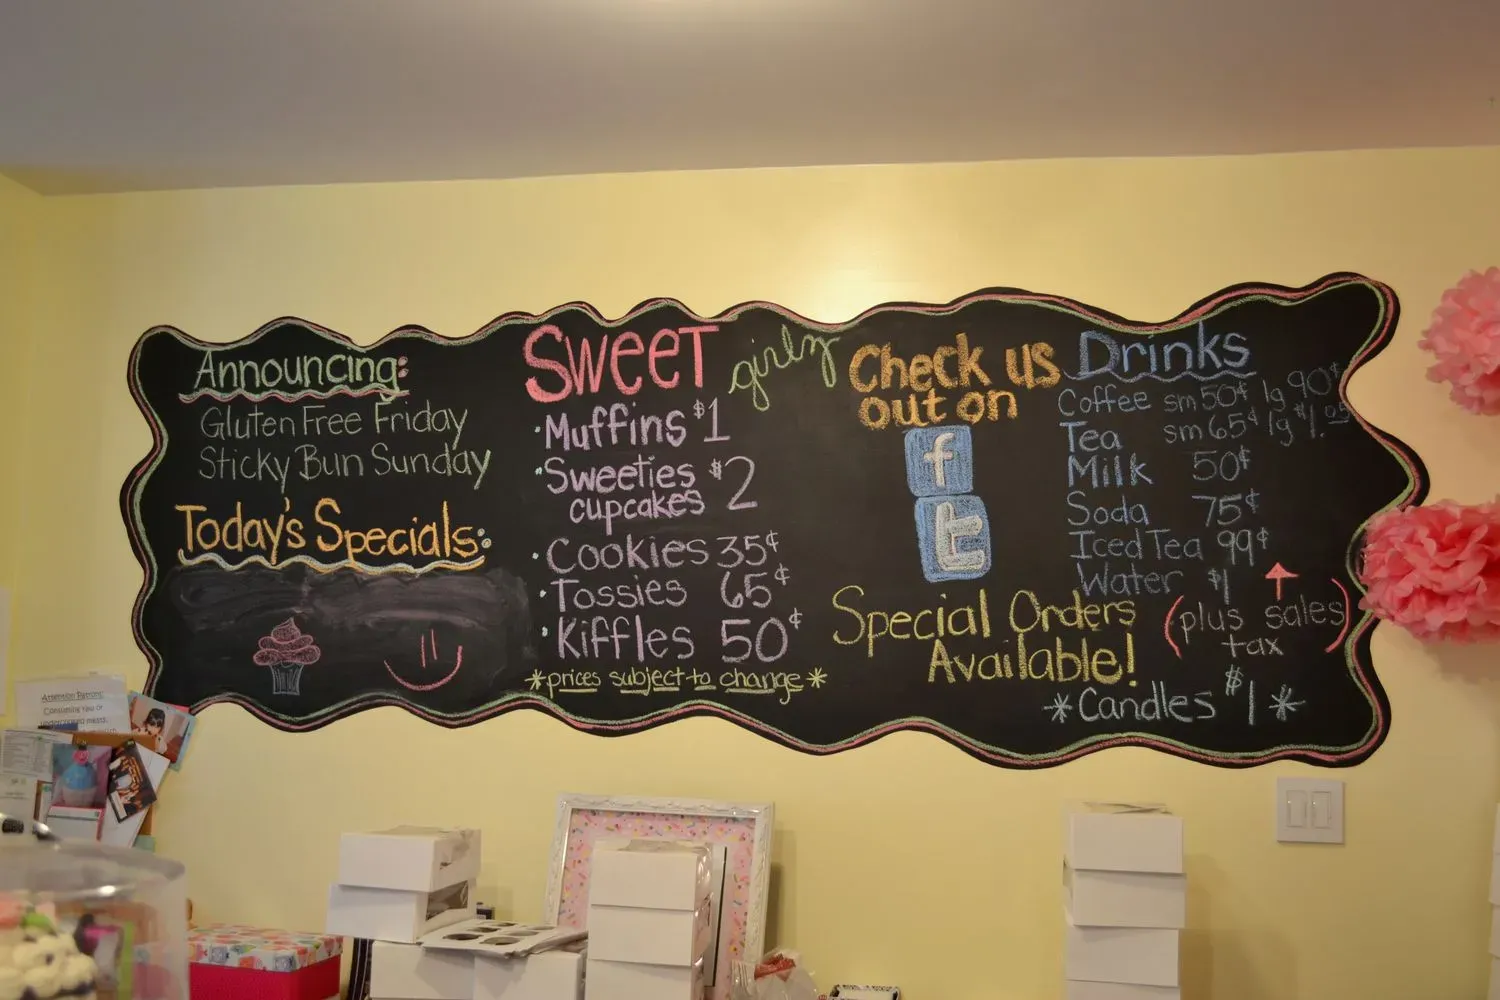 Announcing:
Gluten Free Friday
Sticky Bun Sunday
Today's Specials:
SWEET girlz
• Muffins $1
• Sweeties $2
cupcakes
• Cookies 35¢
• Tossies 65¢
• Kiffles 50¢
*prices subject to change*
Check us
out on
f
t
Special Orders
Available!
Drinks
Coffee sm 50¢ lg 90¢
Tea sm 65¢ lg $1.05
Milk 50¢
Soda 75¢
Iced Tea 99¢
Water $1
(plus sales
tax)
*Candles $1*
Attention Patrons:
Consuming raw or